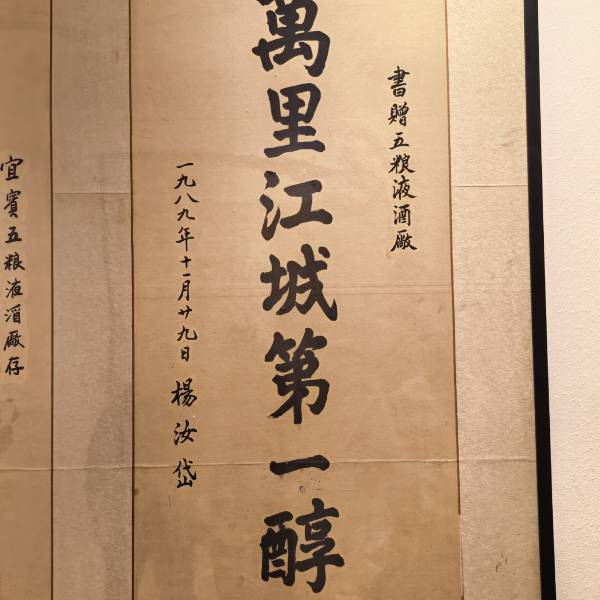 書贈五粮液酒厰
萬里江城第一醇
一九八九年十一月廿九日 楊汝岱
宜賓五粮液酒廠存